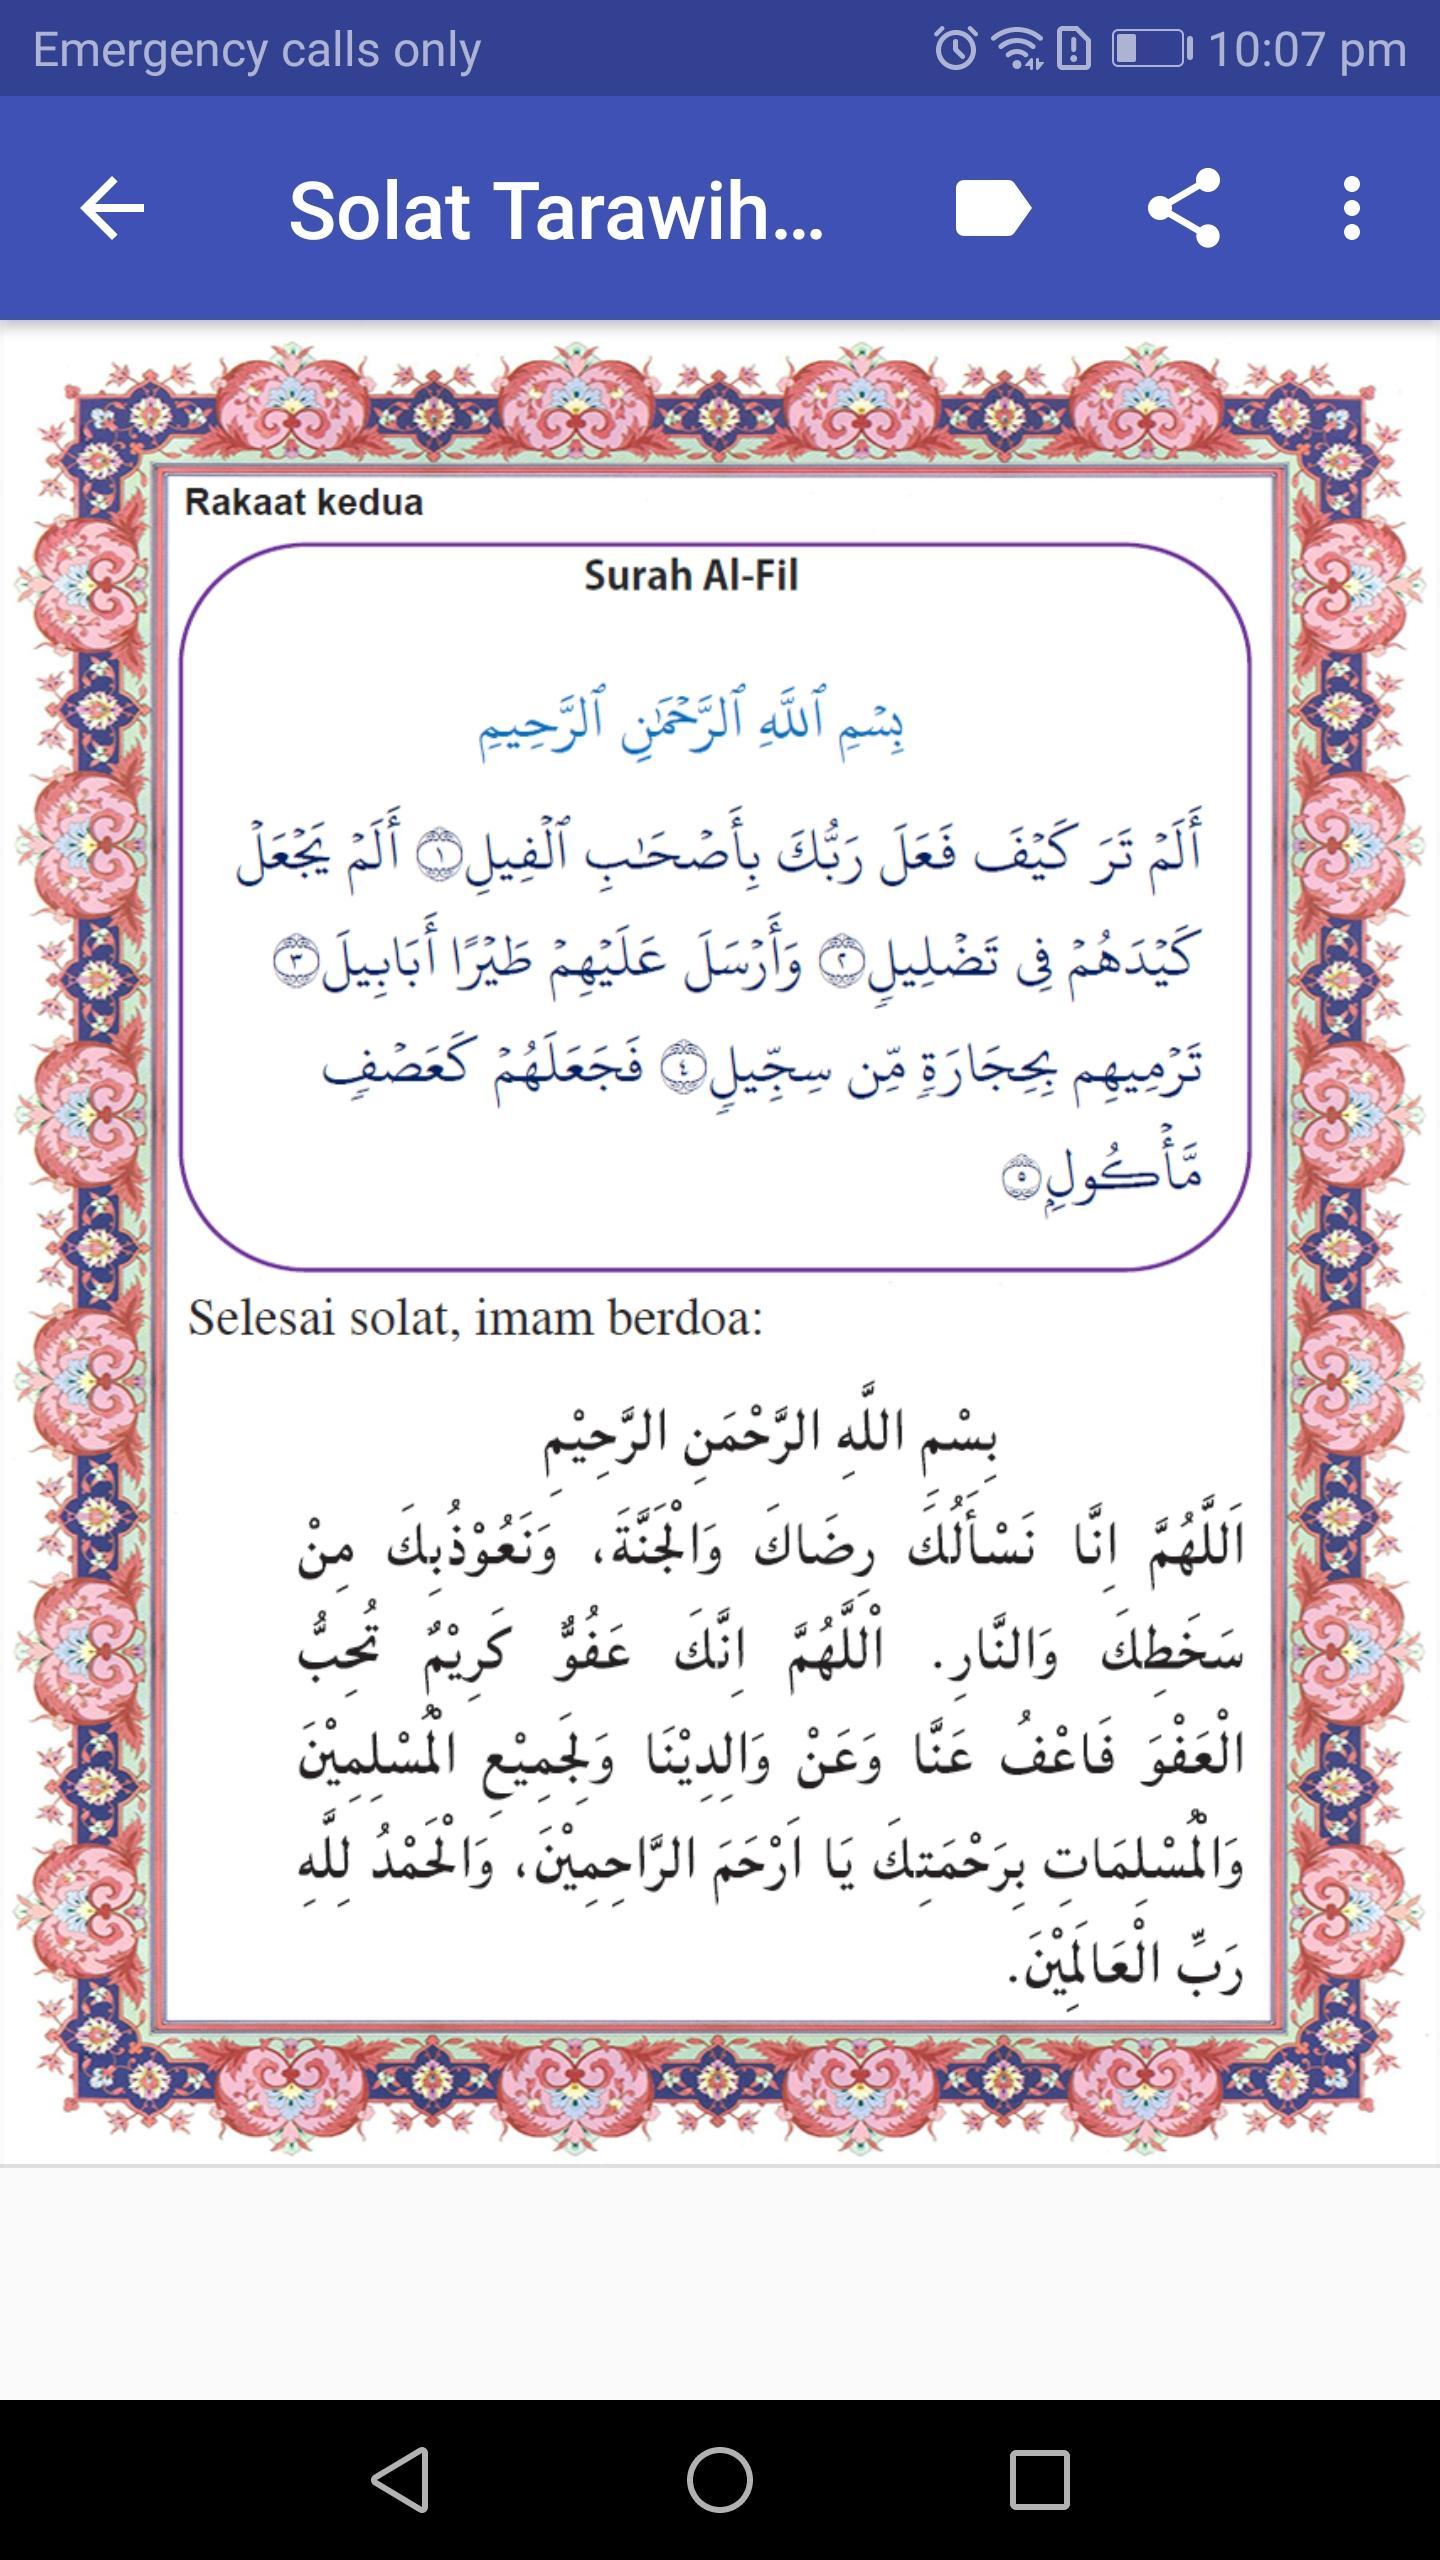 Emergency calls only 10:07 pm
Solat Tarawih...
Rakaat kedua
Surah Al-Fil
بِسْمِ ٱللَّهِ ٱلرَّحْمَٰنِ ٱلرَّحِيمِ
أَلَمْ تَرَ كَيْفَ فَعَلَ رَبُّكَ بِأَصْحَٰبِ ٱلْفِيلِ ١ أَلَمْ يَجْعَلْ
كَيْدَهُمْ فِى تَضْلِيلٍ ٢ وَأَرْسَلَ عَلَيْهِمْ طَيْرًا أَبَابِيلَ ٣
تَرْمِيهِم بِحِجَارَةٍ مِّن سِجِّيلٍ ٤ فَجَعَلَهُمْ كَعَصْفٍ
مَّأْكُولٍۭ ٥
Selesai solat, imam berdoa:
بِسْمِ اللَّهِ الرَّحْمَنِ الرَّحِيْمِ
اَللَّهُمَّ اِنَّا نَسْأَلُكَ رِضَاكَ وَالْجَنَّةَ، وَنَعُوْذُبِكَ مِنْ
سَخَطِكَ وَالنَّارِ. اْللَّهُمَّ اِنَّكَ عَفُوٌّ كَرِيْمٌ تُحِبُّ
الْعَفْوَ فَاعْفُ عَنَّا وَعَنْ وَالِدِيْنَا وَلِجَمِيْعِ الْمُسْلِمِيْنَ
وَالْمُسْلِمَاتِ بِرَحْمَتِكَ يَا اَرْحَمَ الرَّاحِمِيْنَ، وَالْحَمْدُ لِلَّهِ
رَبِّ الْعَالَمِيْنَ.